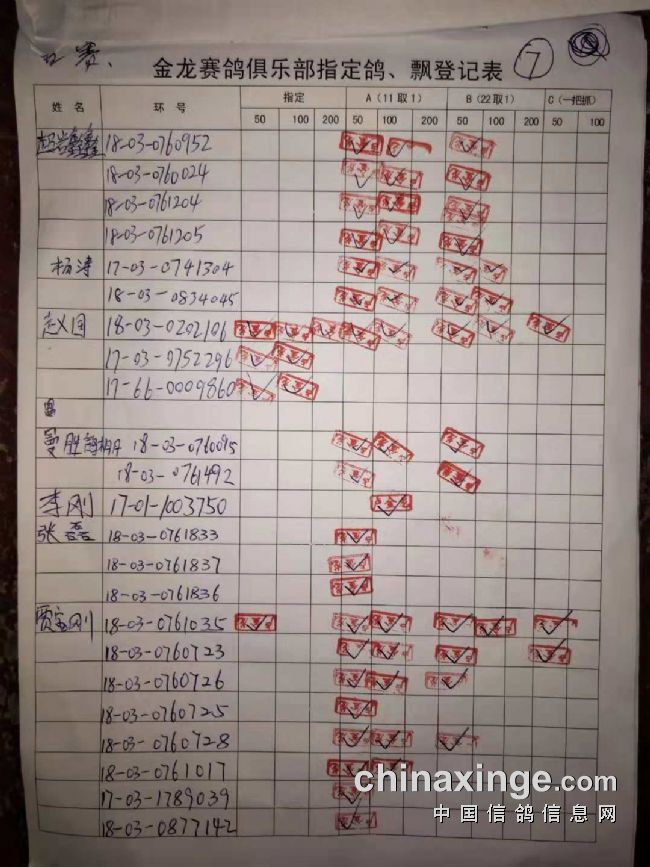 赛.
金龙赛鸽俱乐部指定鸽、飘登记表 7
姓名 环号 指定 A（11取1） B（22取1） C（一把抓）
50 100 200 50 100 200 50 100 200 50 100
18-03-0760952
18-03-0760024
18-03-0761204
18-03-0761205
杨涛 17-03-0741304
18-03-0834045
赵义国 18-03-0202106
17-03-0752296
17-66-0009860
18-03-0760095
18-03-0761492
李刚 17-01-1003750
张磊 18-03-0761833
18-03-0761837
18-03-0761836
贾宝刚 18-03-0761035
18-03-0760723
18-03-0760726
18-03-0760725
18-03-0760728
18-03-0761017
17-03-1789039
18-03-0877142
chinaxinge.com
中国信鸽信息网